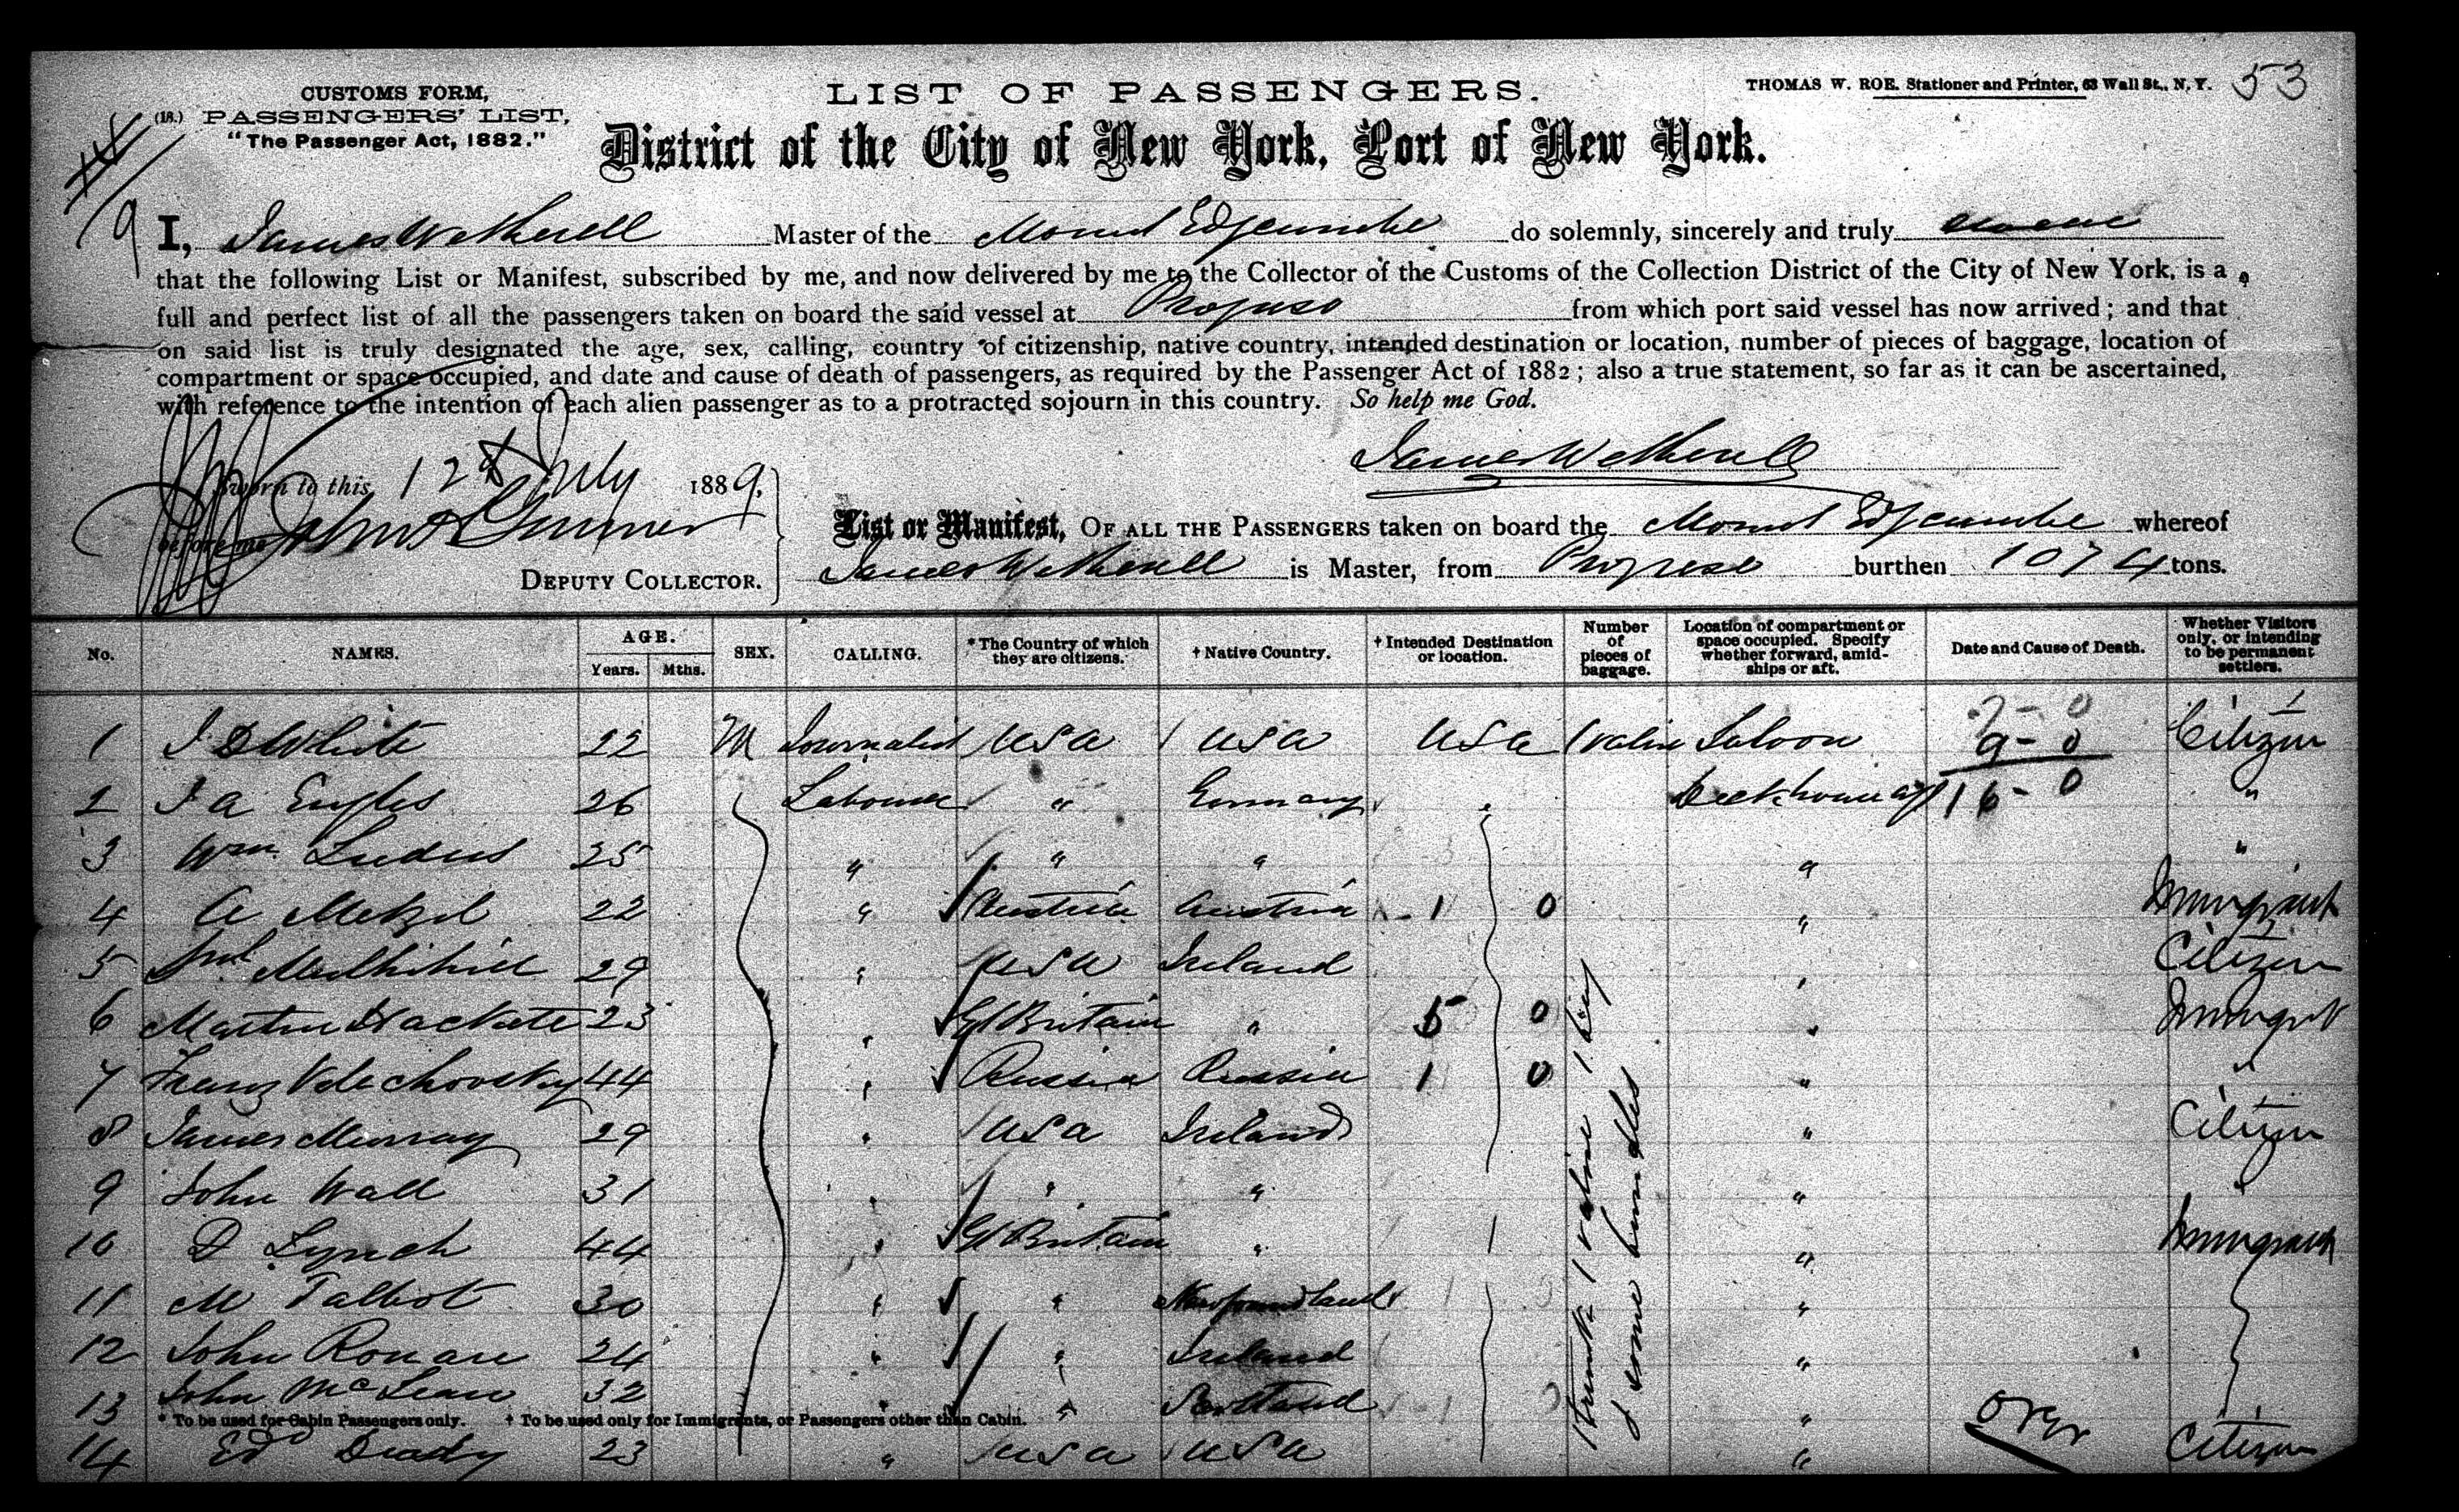 CUSTOMS FORM,
(18.) PASSENGERS' LIST,
"The Passenger Act, 1882."
LIST OF PASSENGERS.
THOMAS W. ROE. Stationer and Printer, 63 Wall St., N. Y.
53
District of the City of New York, Port of New York.
9
I, James Wetherell Master of the Mount Edgcumbe do solemnly, sincerely and truly swear
that the following List or Manifest, subscribed by me, and now delivered by me to the Collector of the Customs of the Collection District of the City of New York, is a
full and perfect list of all the passengers taken on board the said vessel at Progreso from which port said vessel has now arrived; and that
on said list is truly designated the age, sex, calling, country of citizenship, native country, intended destination or location, number of pieces of baggage, location of
compartment or space occupied, and date and cause of death of passengers, as required by the Passenger Act of 1882; also a true statement, so far as it can be ascertained,
with reference to the intention of each alien passenger as to a protracted sojourn in this country. So help me God.
James Wetherell
Sworn to this 12th July 1889,
before me
DEPUTY COLLECTOR.
List or Manifest, OF ALL THE PASSENGERS taken on board the Mount Edgcumbe whereof
James Wetherell is Master, from Progreso burthen 1074 tons.
No. NAMES. AGE. Years. Mths. SEX. CALLING. * The Country of which they are citizens. † Native Country. † Intended Destination or location. Number of pieces of baggage. Location of compartment or space occupied. Specify whether forward, amid-ships or aft. Date and Cause of Death. Whether Visitors only, or intending to be permanent settlers.
1 J D White 22 M Journalist USA USA USA 1 valise Saloon 7-0 9-0 Citizen
2 J A Engles 26 Labourer " Germany " Deckhouse aft 16-0 "
3 Wm. Ludus 25 " " " " "
4 A Metzil 22 " Austria Austria 1 0 " Immigrant
5 29 " USA Ireland " Citizen
6 Martin 23 " Gt Britain " 5 0 " Immigrant
7 Franz 44 " Russia Russia 1 0 " "
8 James Murray 29 " USA Ireland " Citizen
9 John Wall 31 " " " " "
10 D Lynch 44 " Gt Britain " " Immigrant
11 M Talbot 30 " " Newfoundland "
12 John Ronan 24 " " Ireland "
13 John McLean 32 " " Scotland "
* To be used for Cabin Passengers only. † To be used only for Immigrants, or Passengers other than Cabin.
14 Ed Deady 23 " USA USA " Citizen
1 trunk 1 valise 1 bag
& some bundles
over